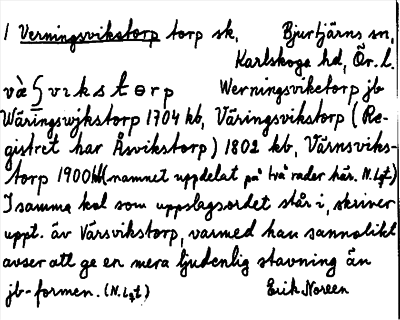 1 Verningsvikstorp torp sk. Bjurtjärns sn,
Karlskoga hd, Ör. l.
Werningsviketorp jb
Wäringswjkstorp 1704 kb, Väringsvikstorp (Re-
gistret har Åsvikstorp) 1802 kb, Värnsviks-
torp 1900 kb (namnet uppdelat på två rader här. N.Lgt)
I samma kol som uppslagsordet står i, skriver
uppt. äv Värsvikstorp, varmed han sannolikt
avser att ge en mera ljudenlig stavning än
jb-formen. (N.Lgt) Erik Noreen